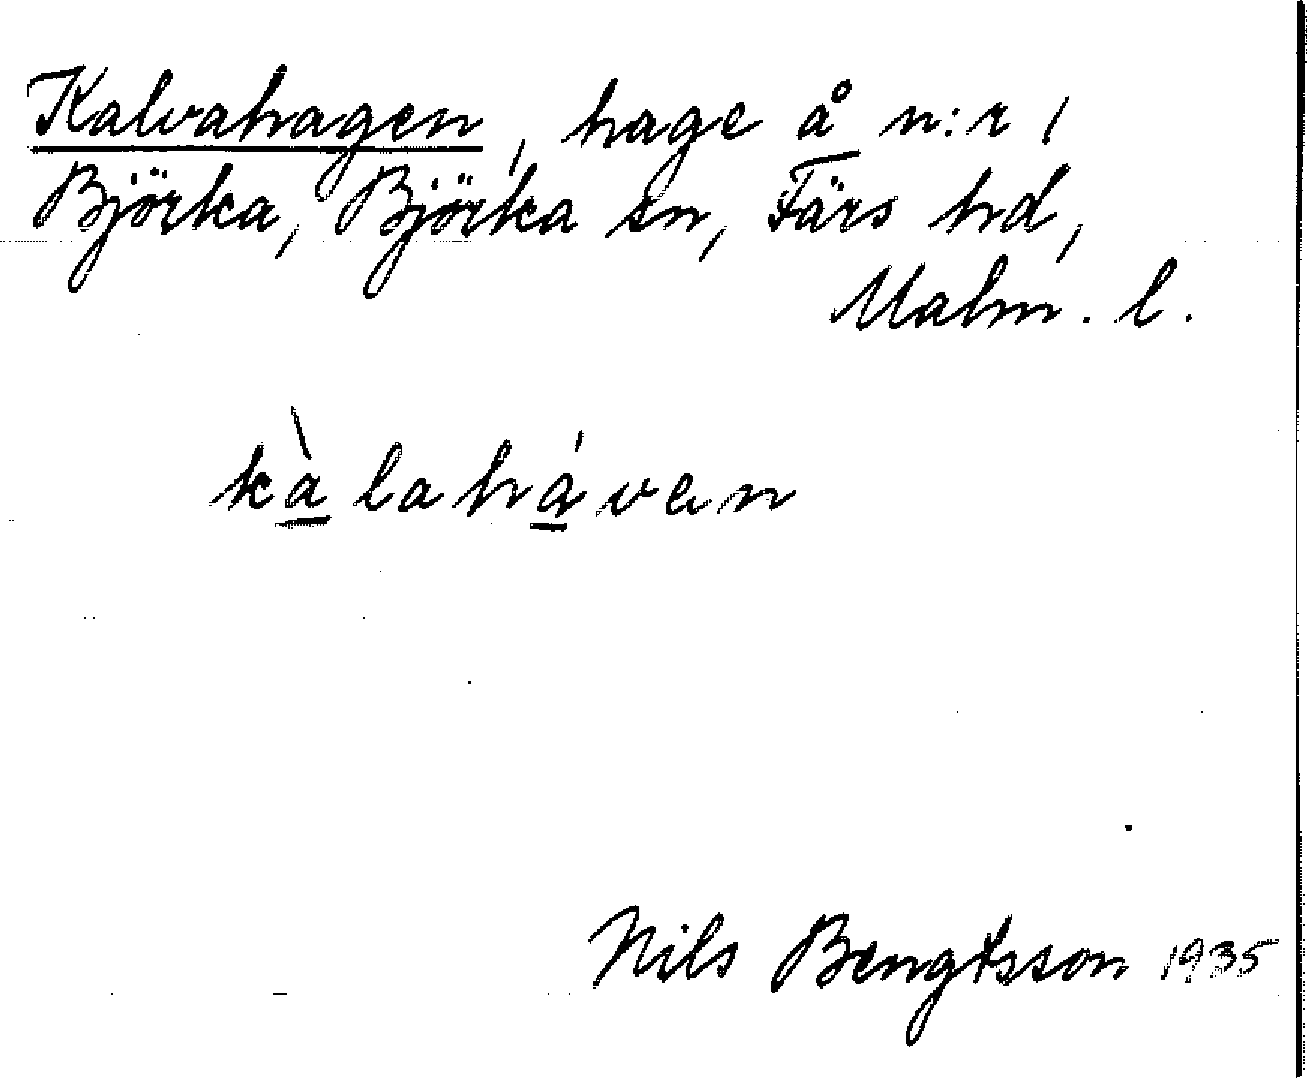 Kalvahagen, hage å n:r 1
Björka, Björka sn, Färs hd,
Malm. l.
kàlaháven
Nils Bengtsson 1935